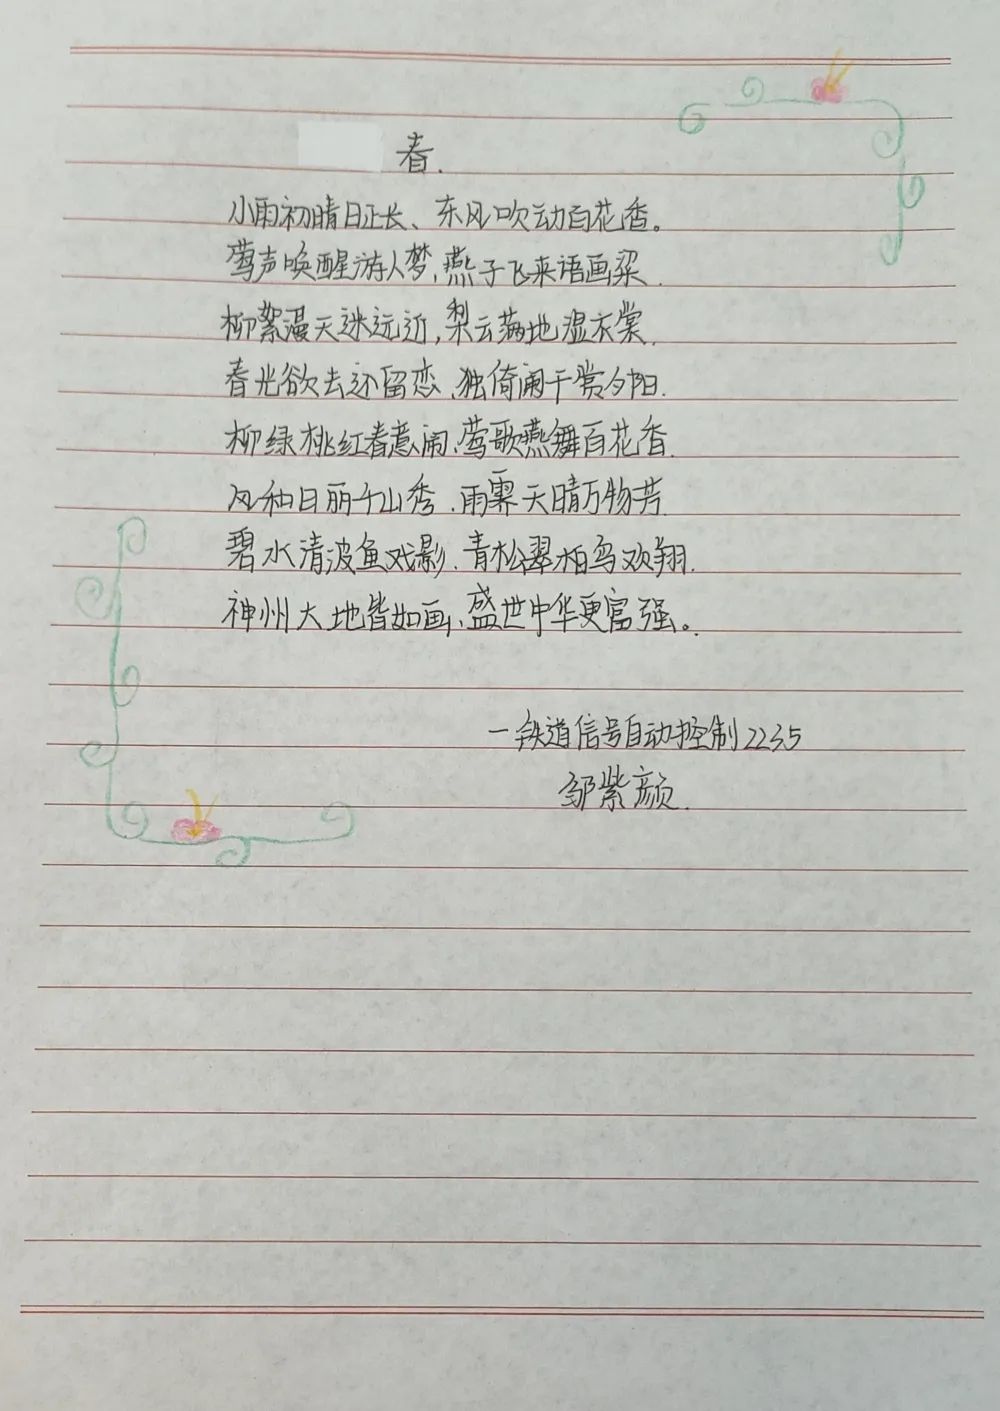 春.
小雨初晴日正长、东风吹动百花香。
莺声唤醒游人梦,燕子飞来语画梁.
柳絮漫天迷远近,梨云满地湿衣裳.
春光欲去还留恋、独倚阑干赏夕阳.
柳绿桃红春意闹、莺歌燕舞百花香.
风和日丽千山秀.雨霁天晴万物芳.
碧水清波鱼戏影.青松翠柏鸟欢翔.
神州大地皆如画、盛世中华更富强。
一铁道信号自动控制2235
邹紫颜.